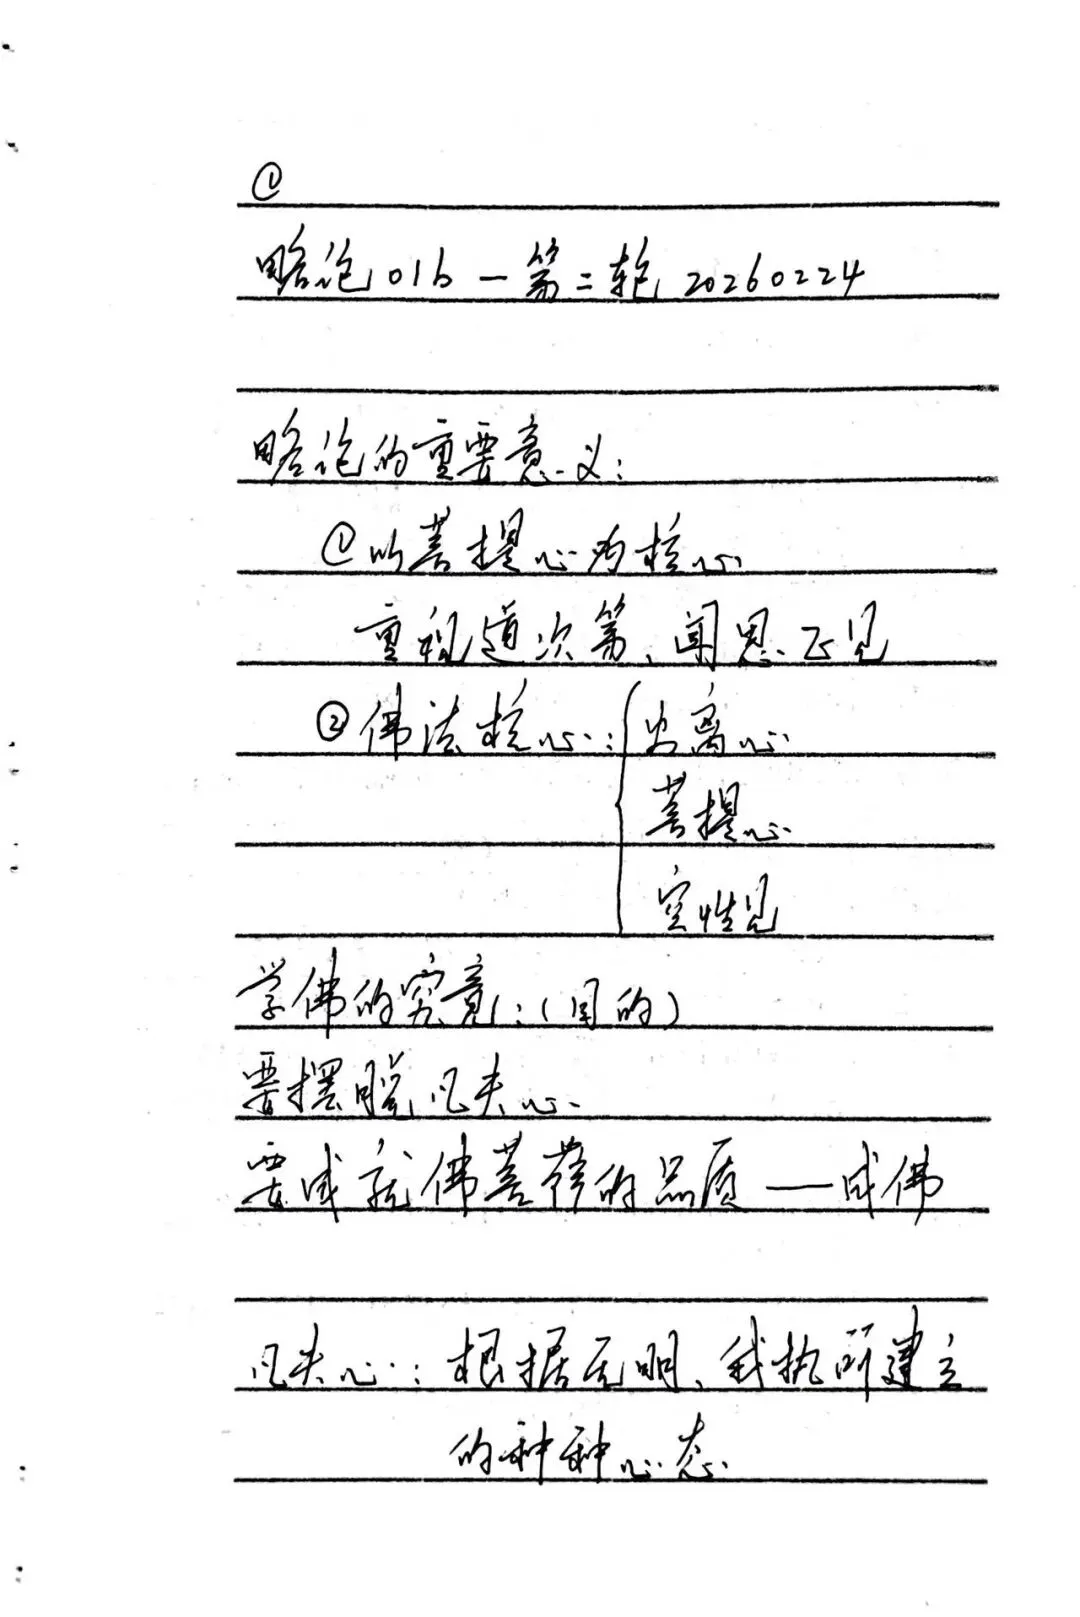 ①
略论01b—第二轮 20260224
略论的重要意义：
①以菩提心为核心
重视道次第、闻思正见
②佛法核心：{出离心
菩提心
空性见
学佛的究竟：(目的)
要摆脱凡夫心
要成就佛菩萨的品质——成佛
凡夫心：根据无明、我执所建立
的种种心态